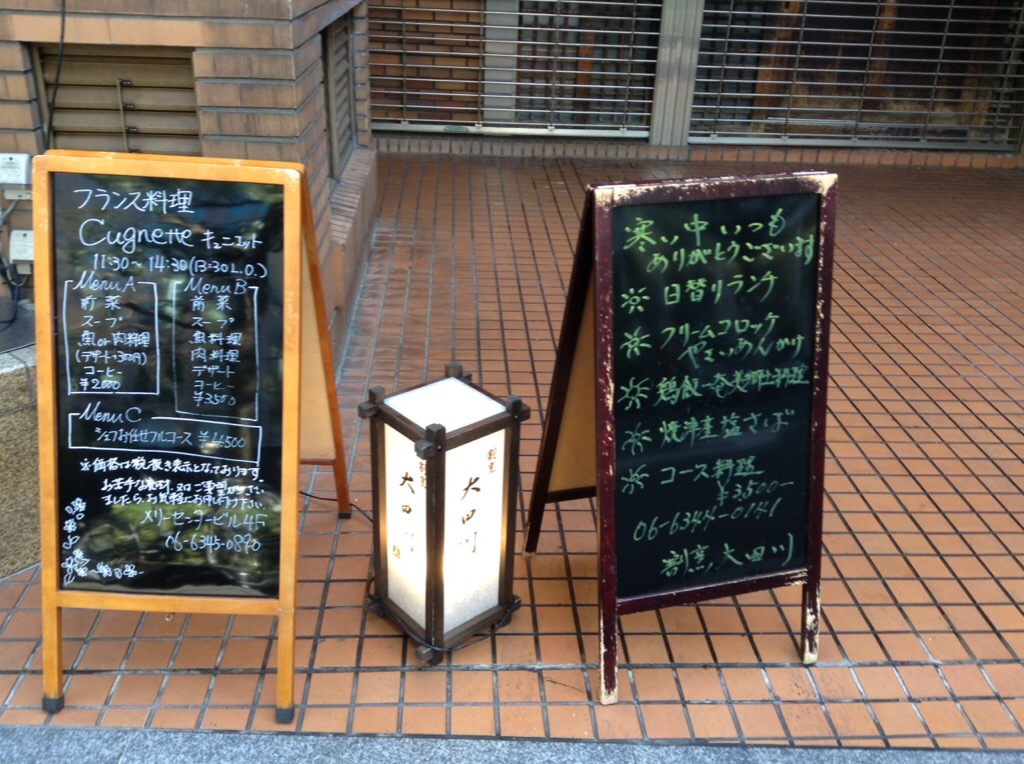 フランス料理
Cugnette キュニエット
11:30～14:30(13:30L.O.)
Menu A
前菜
スープ
魚or肉料理
(デザート+300円)
コーヒー
¥2,000
Menu B
前菜
スープ
魚料理
肉料理
デザート
コーヒー
¥3500
Menu C
シェフお任せフルコース ¥4500
※価格は税抜き表示となっております。
お苦手な食材、又はご要望がござい
ましたら、お気軽にお申し付け下さい。
メリーセンタービル4F
06-6345-0890
割烹
大田川
割烹
大田川
寒い中いつも
ありがとうございます
日替りランチ
クリームコロッケ
やさいあんかけ
鶏飯-奄美郷土料理
焼津産塩さば
コース料理
¥3500-
06-6344-0141
割烹 大田川